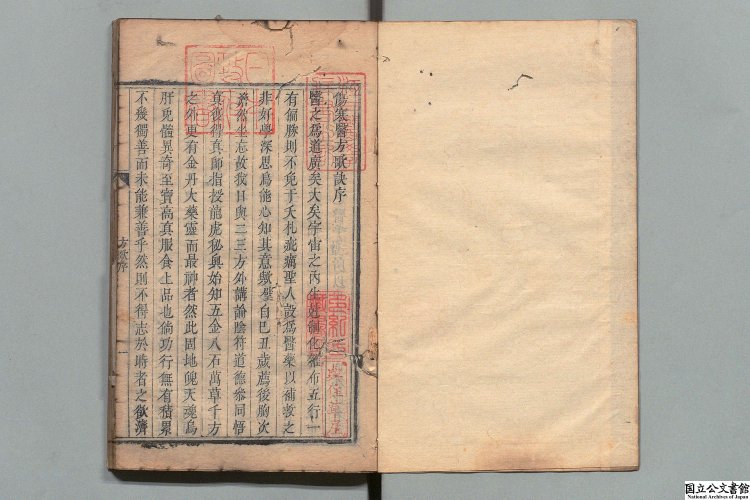 傷寒醫方歌訣序
醫之爲道廣矣大矣宇宙之內生姓細化雜布五行一
有偏勝則不免于夭札疵癘聖人故爲醫藥以補救之
非好學深思烏能心知其意歟自巳丑歲薦後胸次
齋然坐忘故我日與二三方外講論陰符道德參同悟
真復得真師指授龍虎秘奥始知五金八石萬草千方
之外更有金丹大藥靈而最神者然此固地魄天魂烏
肝兎髓異奇至寶高真服食上品也倘功行無有積累
不幾獨善而未能兼善乎然則不得志於時者之欲濟
方歌序
一
国立公文書館
National Archives of Japan